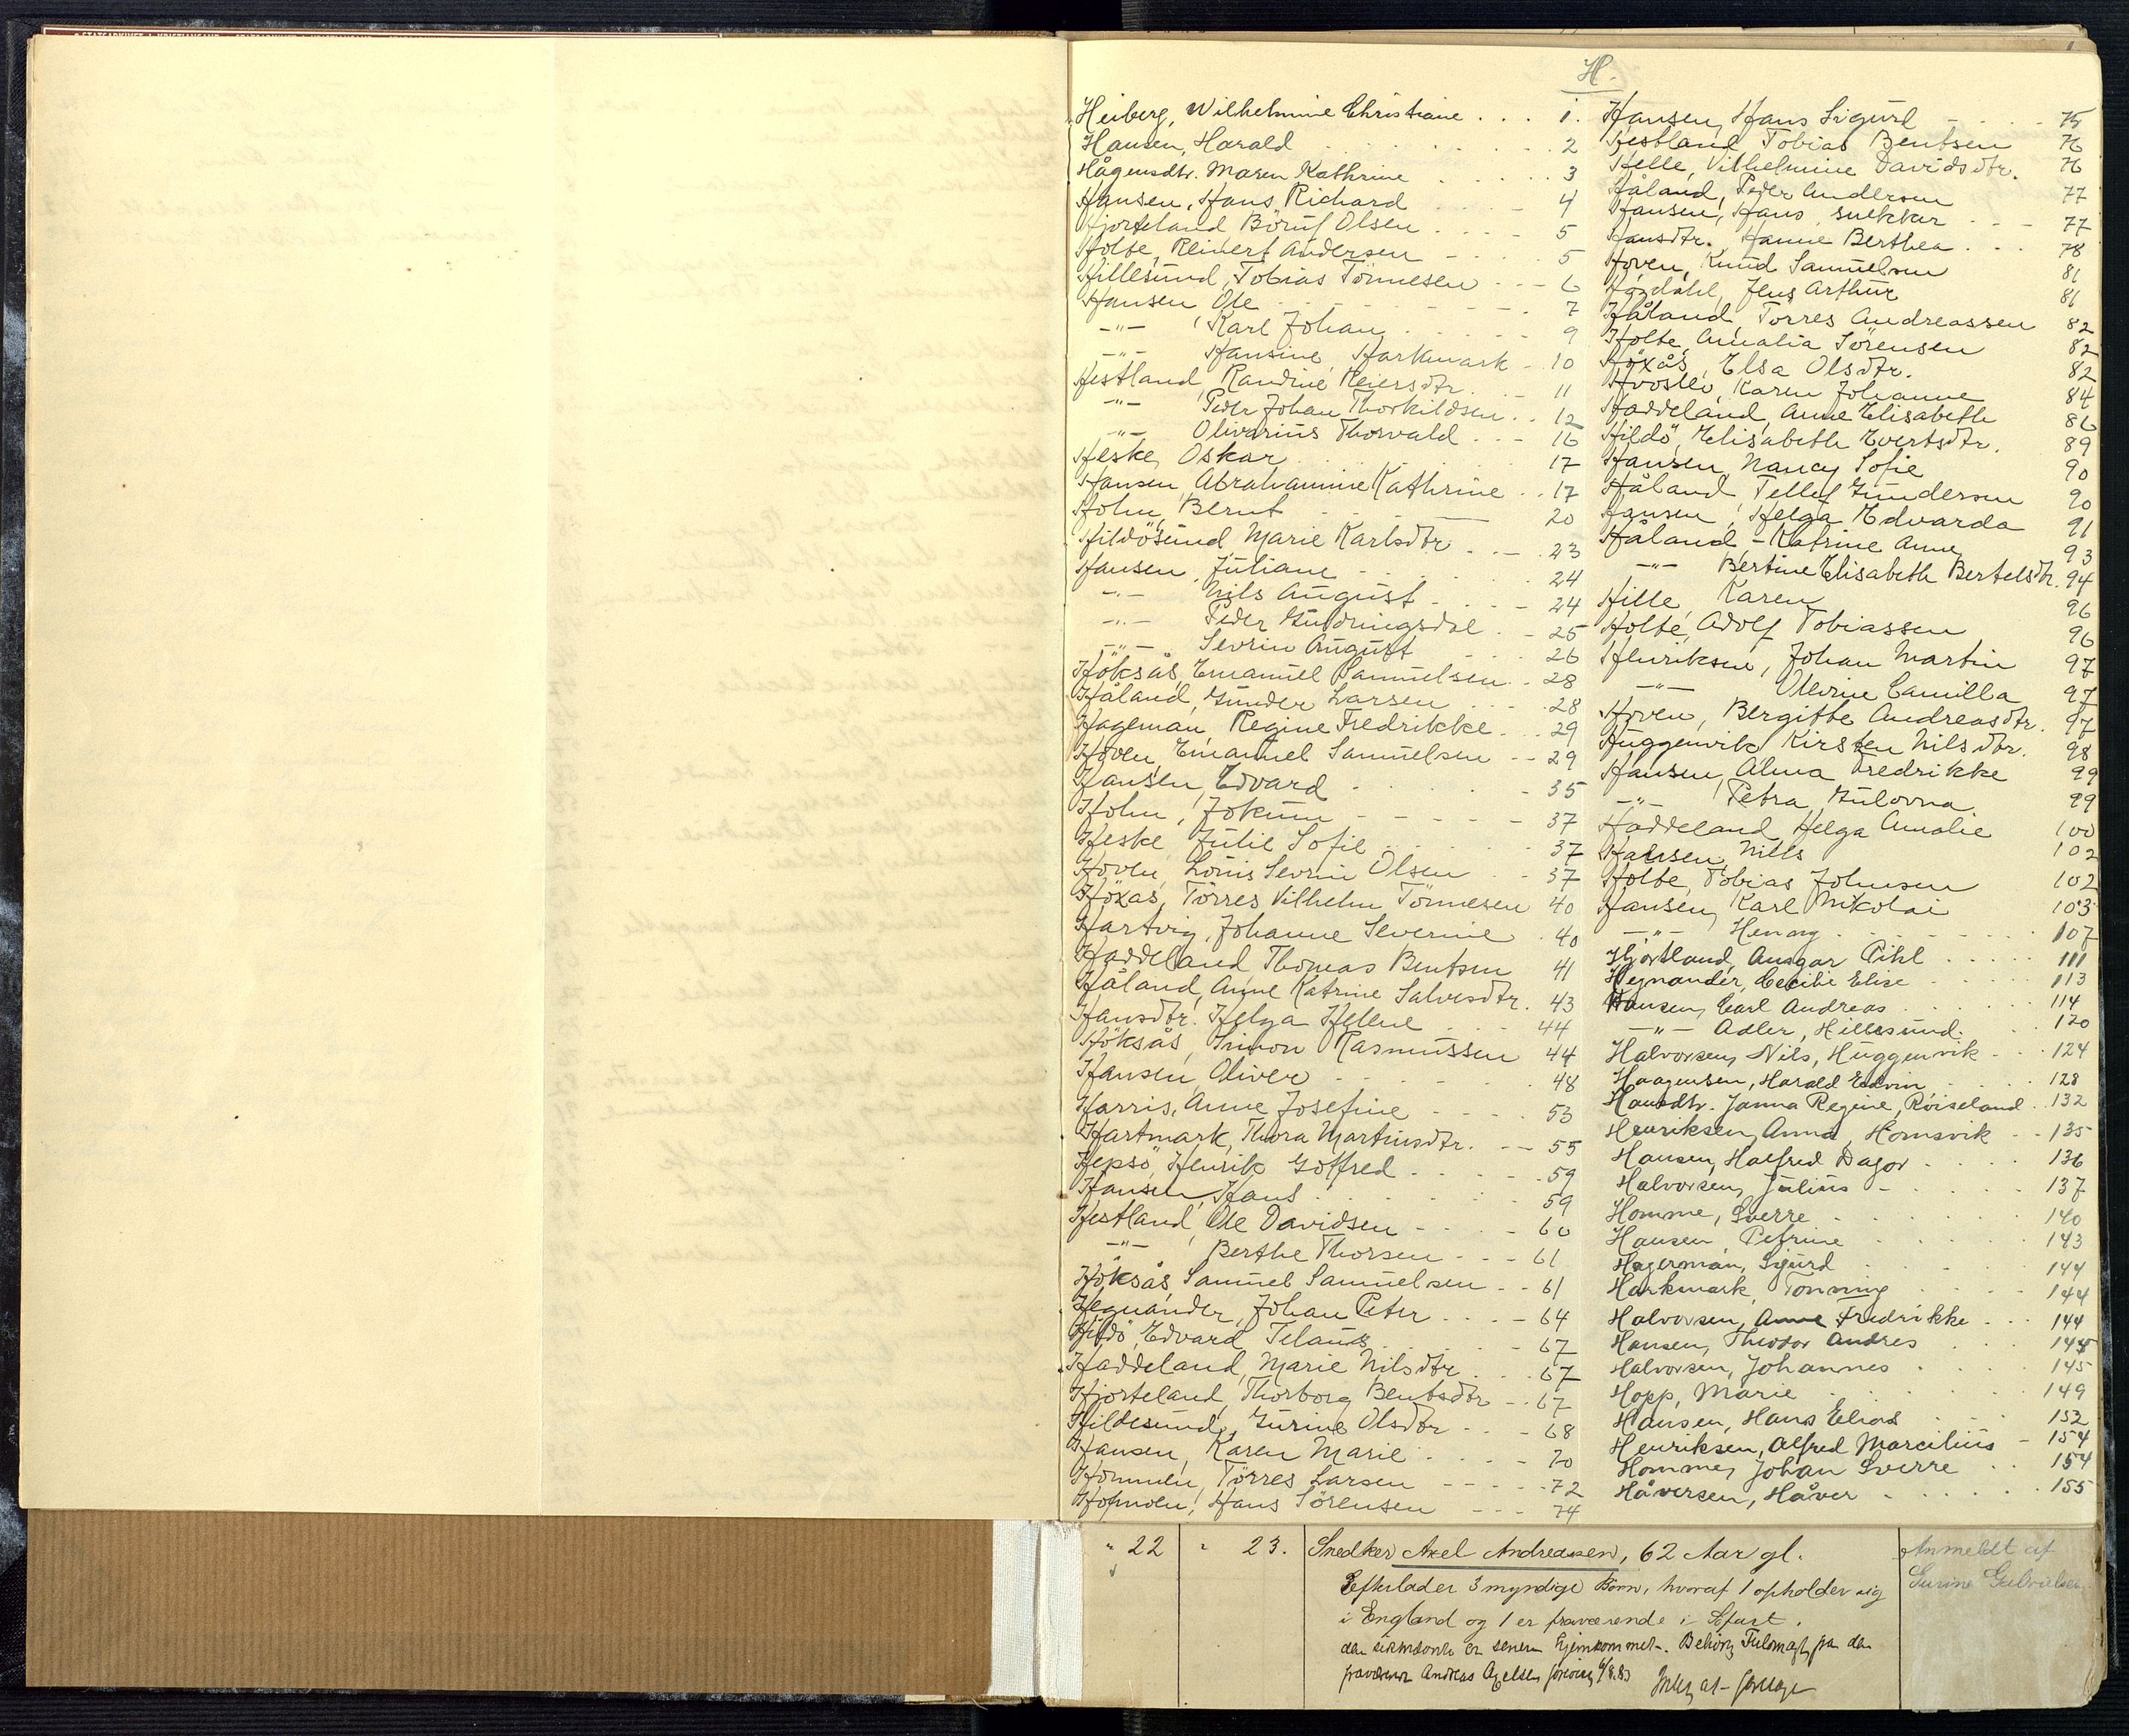 H.
Heiberg, Wilhelmine Christiane . . . 1.
Hansen, Harald . . . 2
Hågensdtr. Maren Kathrine . . . 3
Hansen, Hans Richard . . . 4
Hjorteland Börüf Olsen . . . 5
Holte, Reinert Andersen . . . 5
Hillesund, Tobias Tönnesen . . . 6
Hansen Ole . . . 7
—"— Karl Johan . . . 9
—"— Hansine, Harkmark - 10
Hestland, Randine Reiersdtr. . . 11
—"— Peder Johan Thorkildsen . . 12
—"— Olivarius Thorvald . . - 16
Heske, Oskar . . . 17
Hansen, Abrahamine Kathrine . . 17
Holm, Bernt . . . 20
Hildösund Marie Karlsdtr . . - 23
Hansen, Juliane . . . 24
—"— Nils August . . . 24
—"— Peder Guldringsdal . - 25
—"— Sevrin August . . . 26
Höksås, Emanuel Samuelsen . . 28
Håland, Gunder Larsen . . . 28
Hageman, Regine Fredrikke . . . 29
Hoven, Emanuel Samuelsen - - 29
Hansen, Edvard . . . 35
Holm, Jokum - - - - - 37
Heske Julie Sofie . . . 37
Hoven, Louis Sevrin Olsen . . 37
Höxås, Törres Vilhelm Tönnesen 40
Hartvig, Johanne Severine . 40
Haddeland Thomas Bentsen 41
Håland, Anne Katrine Salvesdtr. 43
Hansdtr. Helga Helene . . . 44
Höksås, Simon Rasmussen 44
Hansen, Oliver . . . 48
Harris, Anne Josefine - - - 53
Hartmark, Thora Martinsdtr. - - 55
Hepsö, Henrik Gotfred . . . 59
Hansen, Hans . . . 59
Hestland, Ole Davidsen - - - - 60
—"— Berthe Thorsen - - - 61
Höksås, Samuel Samuelsen - - 61
Hegnander, Johan Peter . . . - 64
Hildö, Edvard Telaus . . . 67
Haddeland, Marie Nilsdtr . . . 67
Hjorteland, Thorborg Bentsdtr - . 67
Hildesund, Gurine Olsdtr . . - 68
Hansen, Karen Marie . . . 70
Hommen, Törres Larsen - - - - 72
Holmen, Hans Sörensen - - - 74
Hansen, Hans Sigurd - . . . 75
Hestland, Tobias Bentsen 76
Helle, Vilhelmine Davidsdtr. 76
Håland, Peder Andersen 77
Hansen, Hans, snekker . . - 77
Hansdtr. Hanne Berthea . . . 78
Hoven, Knud Samuelsen 81
Høydahl, Jens Arthur 81
Håland, Törres Andreassen 82
Holte, Amalia Sörensen 82
Höxås, Elsa Olsdtr. 82
Hvoslev, Karen Johanne 84
Haddeland, Anne Elisabeth 86
Hildö, Elisabeth Evertsdtr. 89
Hansen, Nancy Sofie 90
Håland, Tellef Gundersen 90
Hansen, Helga Edvarda 91
Håland - Katrine Anne 93
—"— Bertine Elisabeth Bertelsdtr. 94
Hille, Karen 96
Holte, Adolf Tobiassen 96
Henriksen, Johan Martin 97
—"— Olevine Camilla 97
Hoven, Bergitte Andreasdtr. 97
Huggenvik Kirsten Nilsdtr. 98
Hansen, Alma Fredrikke 99
—"— Petra Gulovna 99
Haddeland, Helga Amalie 100
Hansen, Nills 102
Holte, Tobias Johnsen 102
Hansen, Karl Nikolai 103
—"— Henny . . . 107
Hjortland, Ansgar Pihl . . . 111
Hegnander, Cecilie Elise . . . 113
Hansen, Carl Andreas . . . 114
—"— Adler, Hillesund. . . 120
Halvorsen, Nils, Huggenvik - . . 124
Haagensen, Harald Edvin . . . 128
Hansdtr. Janna Regine, Röiseland . 132
Henriksen, Anna, Homsvik - - 135
Hansen, Halfred Dagor . . . 136
Halvorsen, Julius - . . . 137
Homme, Sverre . . . 140
Hansen, Petrine . . . 143
Hagerman, Sigurd . . . 144
Harkmark, Tonning . . . 144
Halvorsen, Anne Fredrikke . . . 144
Hansen, Theodor Andres . . . 144
Halvorsen, Johannes . . . 145
Hopp, Marie . . . 149
Hansen, Hans Elias . . . 152
Henriksen, Alfred Marcilius - 154
Homme, Johan Sverre . . 154
Håversen, Håver . . . 155
" 22 " 23. Snedker Axel Andreassen, 62 Aar gl.
Efterlader 3 myndige Børn, hvoraf 1 opholder sig
i England og 1 er fraværende i Sfart.
den er senere hjemkommet. Fuldmagt fra den
Andreas Axelsen 6/8.83
Anmeldt af
Surine Gabrielsen